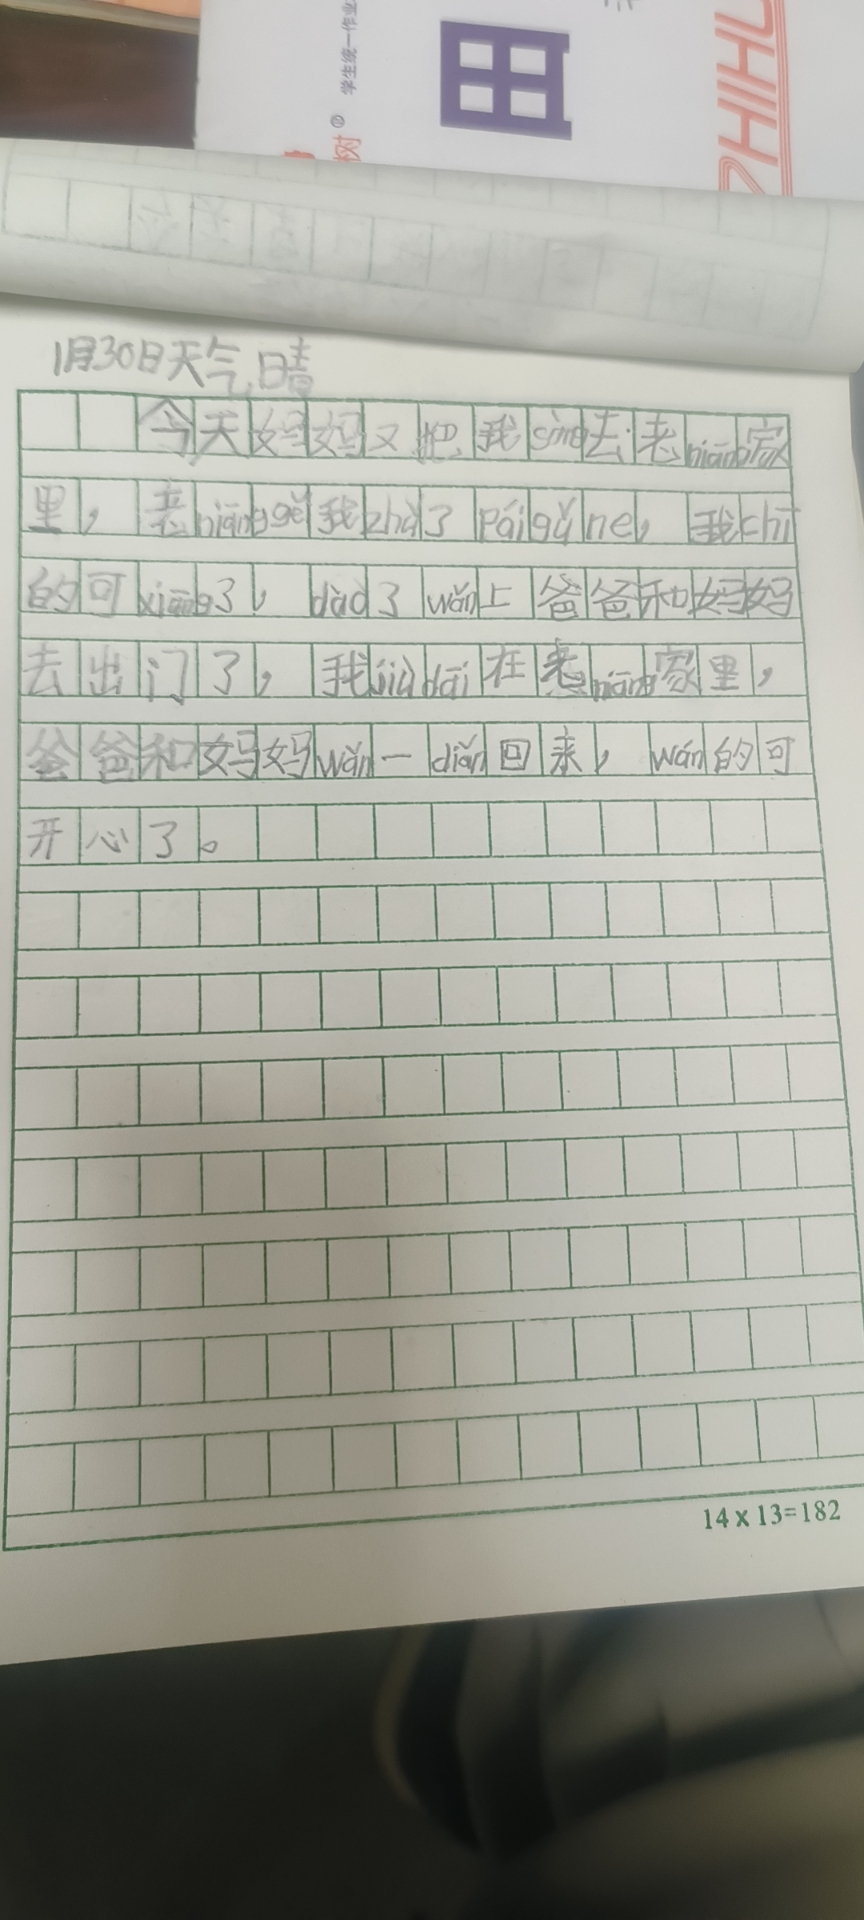 学生统一作业
树®
田
ZHIHU
1月30日天气晴
今天妈妈又把我sòng去老niāng家
里，老niānggěi我zhà了páigǔne，我chī
的可xiāng了，dào了wǎn上爸爸和妈妈
去出门了，我jiùdāi在老niāng家里，
爸爸和妈妈wǎn一diǎn回来，wán的可
开心了。
14x13=182